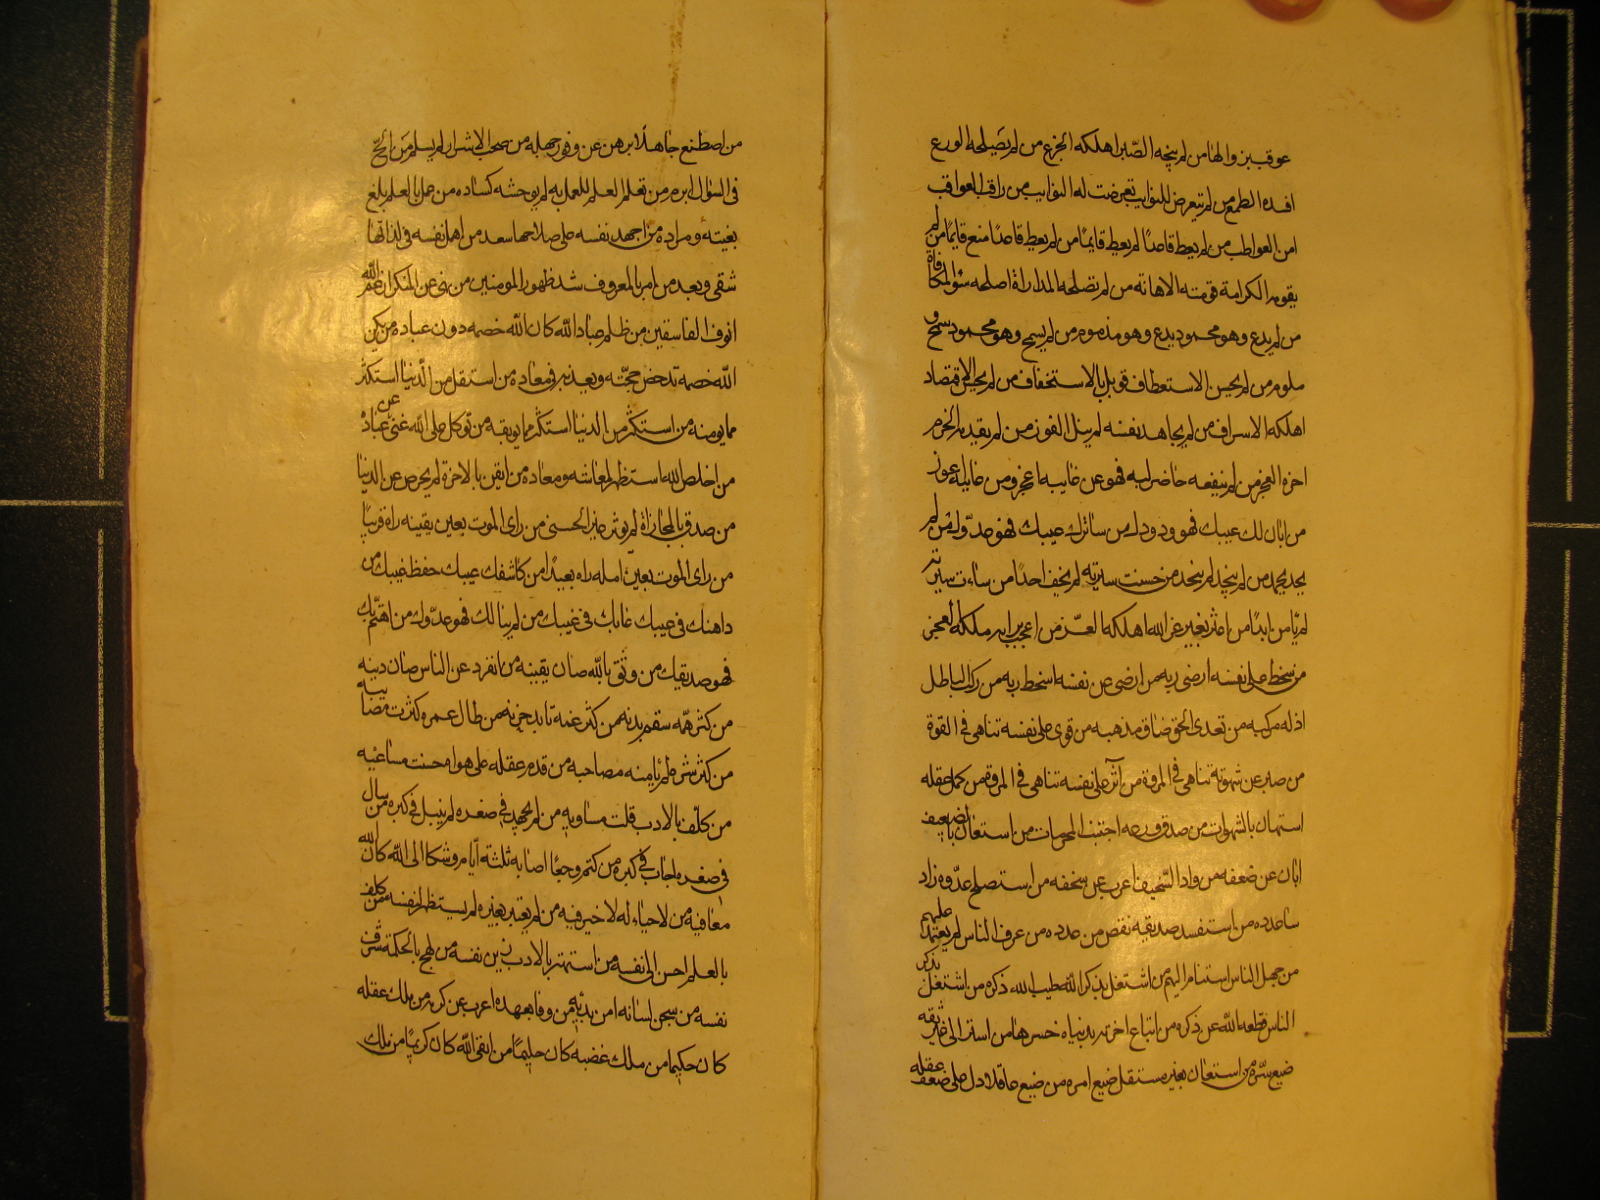 عوقب بزوالها من لم ينجه الصّبر اهلكه الجزع من لم يصلحه الورع
افسده الطمع من لم يتعرض للنوايب تعرضت له النوايب من راقب العواقب
امن العواطب من لم يعط قاعدًا لم يعط قايمًا من لم يعط قاعدًا منع قايمًا من لم
يقومه الكرامة قومته الاهانه من لم تصلحه المداراة اصلحه سؤ المكافاة
من لم يدع وهو محمود يدع وهو مذموم من لم يسمح وهو محمود سمح و
ملوم من لم يحسن الاستعطاف قوبل بالاستخفاف من لم يحسن الاقتصاد
اهلكه الاسراف من لم يجاهد نفسه لم ينل الفوز من لم يقيده الحزم
اخره العجز من لم ينفعه حاضر لبه فهو عن غايبه اعجز ومن غايبله عوز
من ابان لك عيبك فهو ودودك من ساترك عيبك فهو عدّوك من لم
يجد يحمد من لم ينجد لم ينجد من حسنت سيرته لم يخف احدًا من ساءت سيرته
لم يأمن ابدًا من اعتز بغير عز الله اهلكه العزّ من اعجب برايه ملكه العجز
من سخط على نفسه ارضى ربه من ارضى عن نفسه اسخط ربه من ركب الباطل
اذله مركبه من تعدى الحق ضاق مذهبه من قوى على نفسه تناهى فى القوة
من صبر عن شهوته تناهى فى المروة من آثر على نفسه تناهى فى المروة من كمل عقله
استهان بالشهوات من صدق ورعه اجتنب المحرمات من استعان بالضعيف
ابان عن ضعفه من واد السّخيف اعرب عن سخفه من استصلح عدّوه زاد
ساعدده من استفسد صديقه نقص من عدده من عرف الناس لم يعتمد عليهم
من جهل الناس استنام اليهم من اشتغل بذكر الله طيب الله ذكره من اشتغل بذكر
الناس قطعه الله عن ذكره من ابتاع اخرته بدنياه خسرهما من اسر الى غير ثقه
ضيع سرّه من استعان بغير مستقل ضيع امره من ضيع عاقلا دل على ضعف عقله
من اصطنع جاهلًا برهن عن وفور جهله من صحب الاشرار لم يسلم من الحّ
فى السؤال ابرم من تعلم العلم للعمل به لم يوحشه كساده من عمل بالعلم بلغ
بغيته ومراده من اجهد نفسه على صلاحها سعد من اهل نفسه فى لذاتها
شقى وبعد من امر بالمعروف شد ظهور المومنين من نهى عن المنكر ارغم الله
انوف الفاسقين من ظلم عباد الله كان الله خصمه دون عباده من يكن
الله خصمه تدحض حجّته ويعذبه فى معاده من استقل من الدنيا استكثر
مما يومنه من استكثر من الدنيا استكثر مما يوبقه من توكل على الله غنى عن عباده
من اخلص الله استظهر لمعاشه ومعاده من ايقن بالاخرة لم يحرص عن الدنيا
من صدق بالمجازاة لم يوثر غير الحسنى من راى الموت بعين يقينه راه قريبًا
من راى الموت بعين امله راه بعيدًا من كاشفك عيبك حفظ غيبك من
داهنك فى عيبك عابك فى غيبك من لم يبالك فهو عدّوك من اهتمّ بك
فهو صديقك من وثق بالله صان يقينه من انفرد عن الناس صان دينه
من كثر همّه سقم بدنه من كثر غمه تابد حزنه من طال عمره كثرت مصايبه
من كثر شره لم يامنه مصاحبه من قدم عقله على هواه حسنت مساعيه
من كلّف بالادب قلت مساويه من لم يجهد فى صغره لم ينبل فى كبره من سال
فى صغره اجاب فى كبره من كتم وجعًا اصابه ثلثة أيام وشكا الى الله كان الله
معافيه من لا حياء له لا خير فيه من لم يعتبر بغيره لم يستظهر لنفسه من كلف
بالعلم احسن الى نفسه من استهتر بالادب زين نفسه من لهج بالحكمة شرف
نفسه من سجن لسانه امن ندمه من وفا بعهده اعرب عن كرمه من ملك عقله
كان حكيما من ملك غضبه كان حليمًا من اتقى الله كان كريمًا من ملك